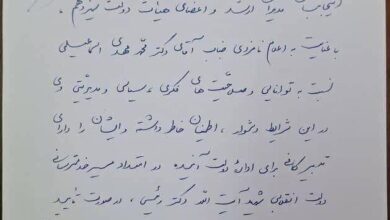 مدیران ارشد و اعضای هیأت دولت سیزدهم،
با عنایت به اعلام نامزدی جناب آقای دکتر محمد مهدی اسماعیلی
نسبت به توانایی و صلاحیت های فکری، سیاسی و مدیریتی وی
در این شرایط دشوار، اطمینان خاطر داشته و ایشان را دارای
برای ادارهٔ دولت آینده در امتداد مسیر خدمترسانی
دولت انقلابی شهید آیت الله دکتر رئیسی، در صورت تأیید